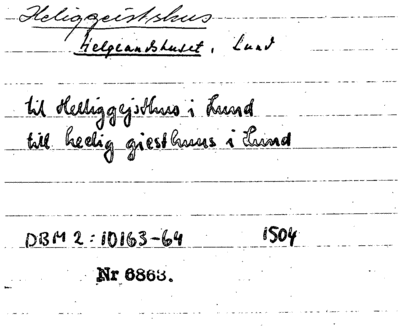 Heliggeistshus
Helgeandshuset, Lund
til Helliggejsthus i Lund
till helig giesthuus i Lund
DBM 2: 10163-64 1504
Nr 6863.